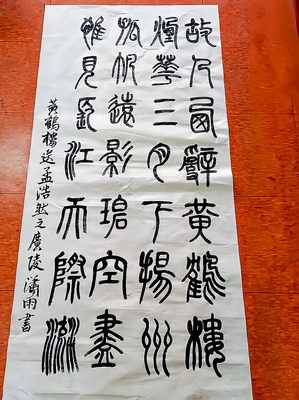 故人西辭黃鶴樓
煙華三月下揚州
孤帆遠影碧空盡
惟見長江天際流
黃鶴樓送孟浩然之廣陵 瀟雨書